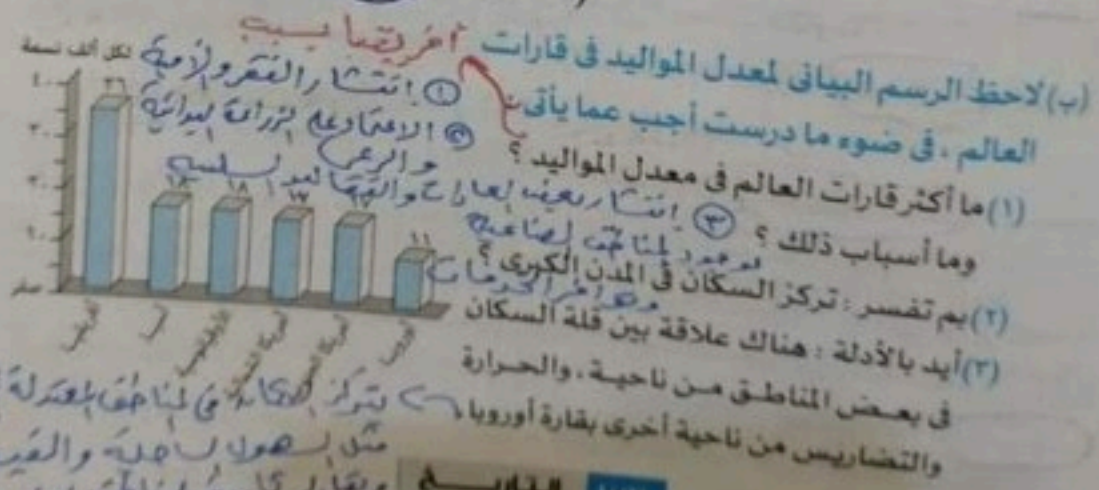 (ب) لاحظ الرسم البيانى لمعدل المواليد فى قارات
العالم ، فى ضوء ما درست أجب عما يأتى :
(١) ما أكثر قارات العالم فى معدل المواليد ؟
وما أسباب ذلك ؟
(٢) بم تفسر : تركز السكان فى المدن الكبرى ؟
(٣) أيد بالأدلة : هناك علاقة بين قلة السكان
فى بعض المناطق من ناحية ، والحرارة
والتضاريس من ناحية أخرى بقارة أوروبا .
أفريقيا بسبب
① انتشار الفقر والأمية
② الاعتماد على الزراعة البدائية
والرعى
③ انتشار بعض العادات والتقاليد السلبية
لوجود المناطق الصناعية
وتوافر الخدمات
يتركز السكان فى المناطق المعتدلة
مثل السهول الساحلية
لكل ألف نسمة
٤٠
٣٠
٢٠
١٠
صفر
٣٦
١٨
١٨
١٧
١١
أفريقيا
آسيا
أمريكا
أمريكا
أوروبا
التاريخ